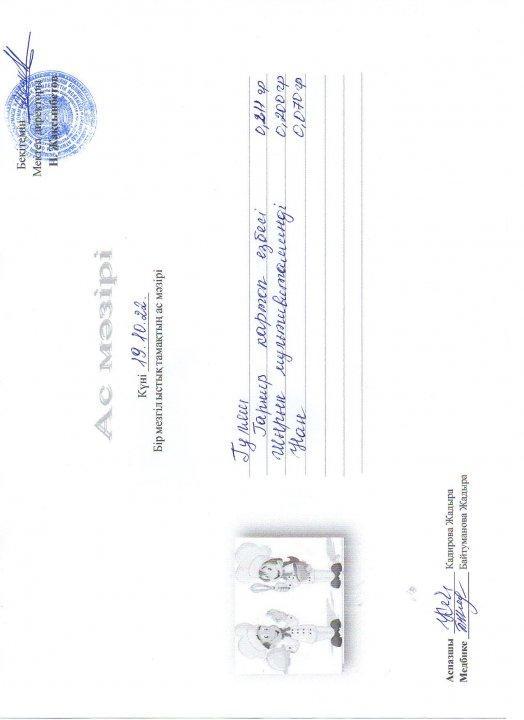 Бекітемін
Мектеп директоры
Н. Жақсыбобетов
Ас мәзірі
Күні 19.10.22.
Бір мезгіл ыстық тамақтың ас мәзірі
Гуляш
Гарнир картоп езбесі 0,211 гр
Шырын мультивитаминді 0,200 гр
Нан 0,070 гр
Аспазшы Кадирова Жадыра
Медбике Байтуманова Жадыра